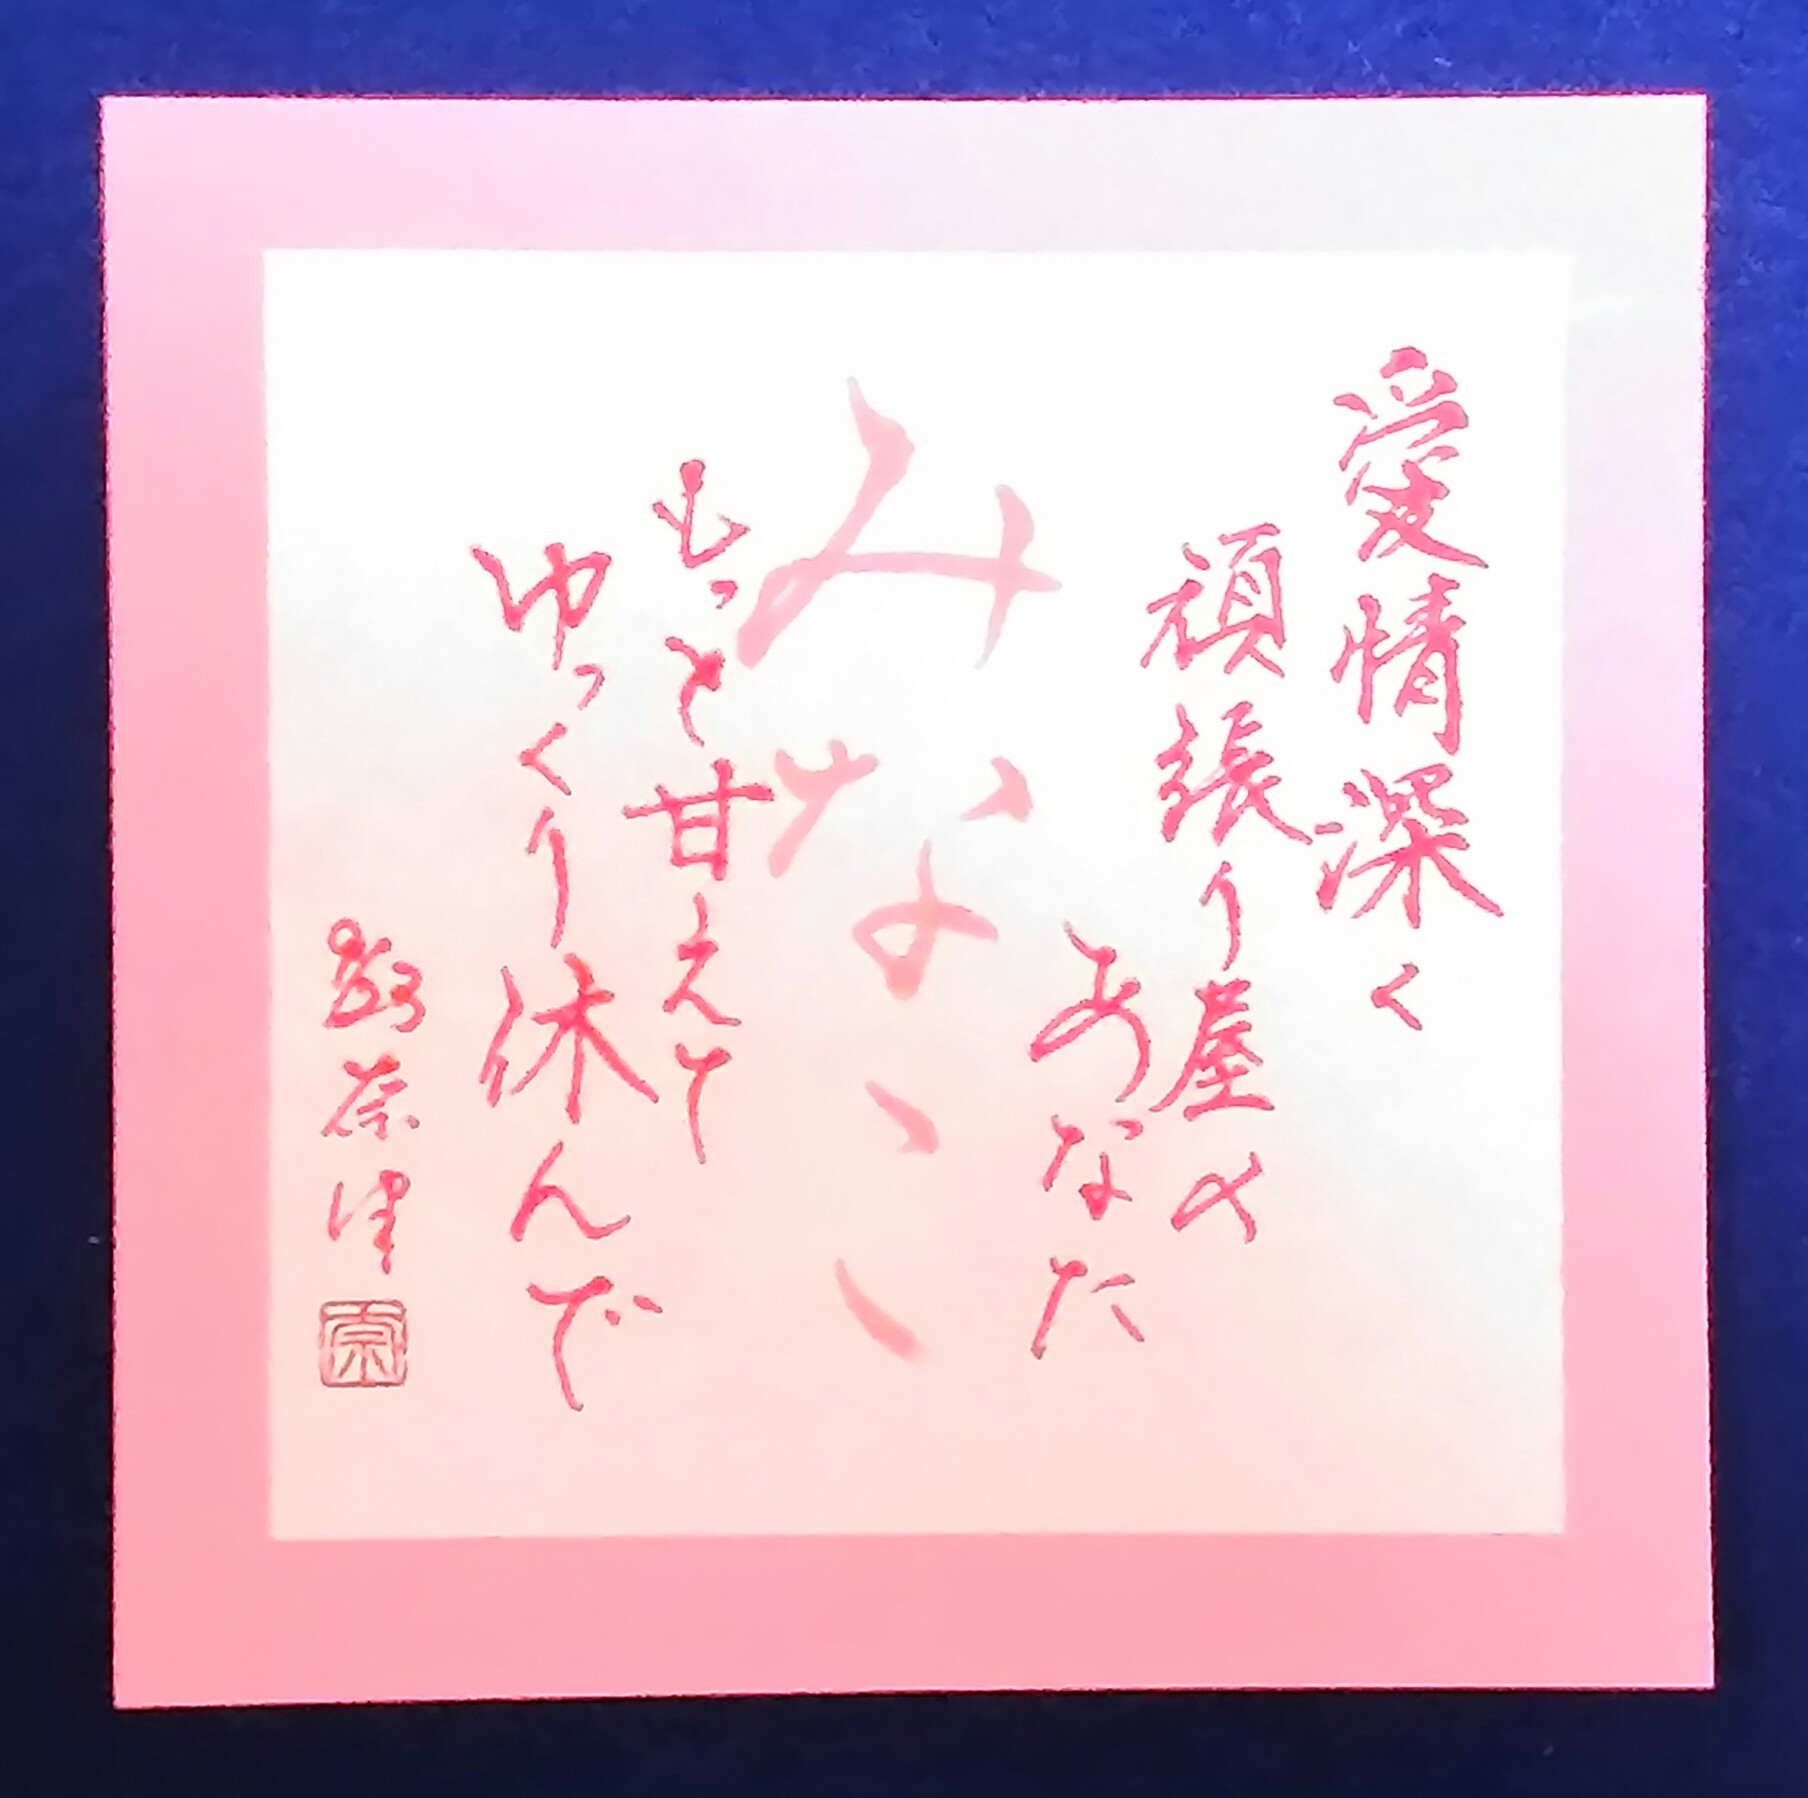 愛情深く
頑張り屋の
あなた
みなこ
もっと甘えて
ゆっくり休んで
奈